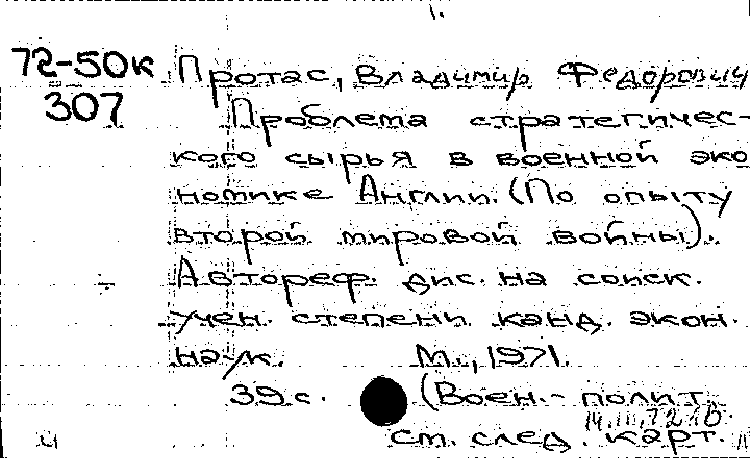 1.
72-50к Протас, Владимир Федорович
307 Проблема стратегичес-
кого сырья в военной эко
номике Англии. (По опыту
второй мировой войны).
Автореф. дис. на соиск.
учен. степени канд. экон.
наук. М., 1971.
39 с. (Воен.-полит.
14.11.72
см. след. карт.